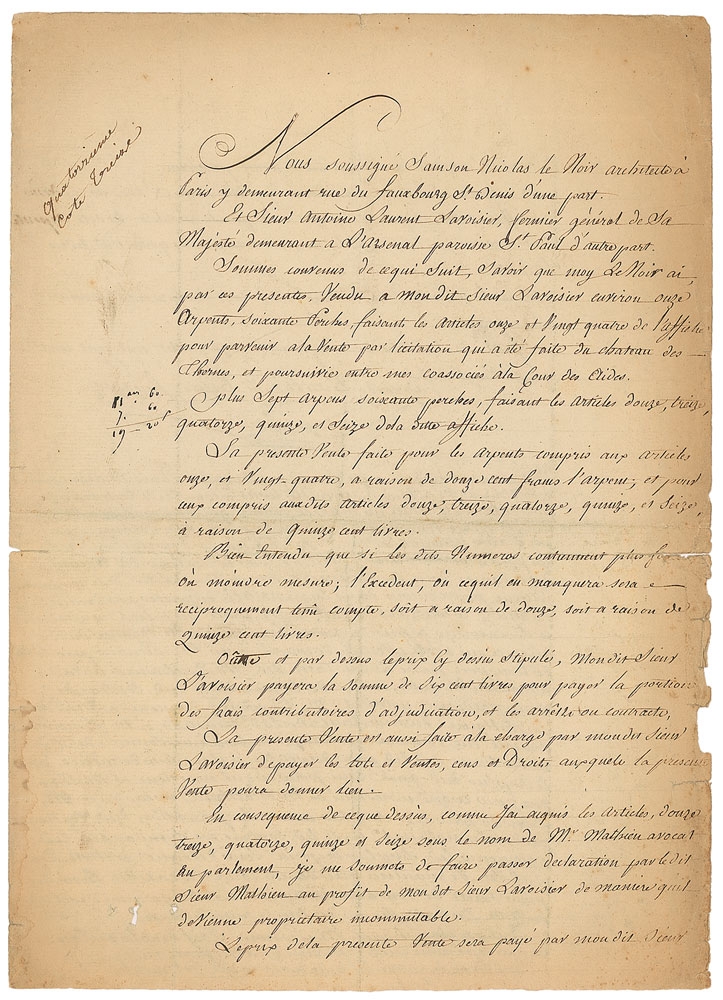 quatorzieme
Cote Treize
Nous soussigné Samson Nicolas le Noir architecte à
Paris y demeurant rue du fauxbourg St. Denis d'une part.
Et Sieur Antoine Laurent Lavoisier, fermier général de Sa
Majesté demeurant a L'Arsenal paroisse St. Paul d'autre part.
Sommes convenus de cequi Suit, Savoir que moy Le Noir ai,
par ces presentes, Vendu a mondit Sieur Lavoisier environ onze
Arpents, soixante Perches, faisant les articles onze et Vingt quatre de l'affiche
pour parvenir ala Vente par licitation qui a été faite du chateau des
Thernes, et poursuivie entre mes coassociés àla Cour des Aides.
plus Sept arpens soixante perches, faisant les articles douze, treize,
quatorze, quinze, et Seize dela ditte affiche.
11 an 60.
7. 60
19 - 20
La presente Vente faite pour les arpents compris aux articles
onze, et Vingt-quatre, a raison de douze cent francs l'arpent; et pour
ceux compris auxdits articles douze, treize, quatorze, quinze, et Seize,
à raison de quinze cent livres.
Bien Entendu que si les dits Numeros contiennent plus
où moindre mesure; l'Excedent, où cequil en manquera sera
reciproquement tenu compte, soit a raison de douze, soit a raison de
Quinze cent livres.
Outre et par dessus leprix Cy dessus Stipulé, Mondit Sieur
Lavoisier payera la somme de Six cent livres pour payer la portion
des frais contributoires d'adjudication, et les arrêsts ou contracts,
La presente Vente est aussi faite àla charge par mondit Sieur
Lavoisier depayer les lots et Ventes, cens et Droits auxquels la presente
Vente poura donner lieu.
En consequence de ceque dessus, comme J'ai aquis les articles, douze
treize, quatorze, quinze et Seize sous le nom de Mr. Mathieu avocat
au parlement, je me soumets de faire passer declaration par ledit
Sieur Mathieu au profit de mondit Sieur Lavoisier de maniere qu'il
devienne propriétaire incommutable.
Leprix dela presente Vente sera payé par mondit Sieur